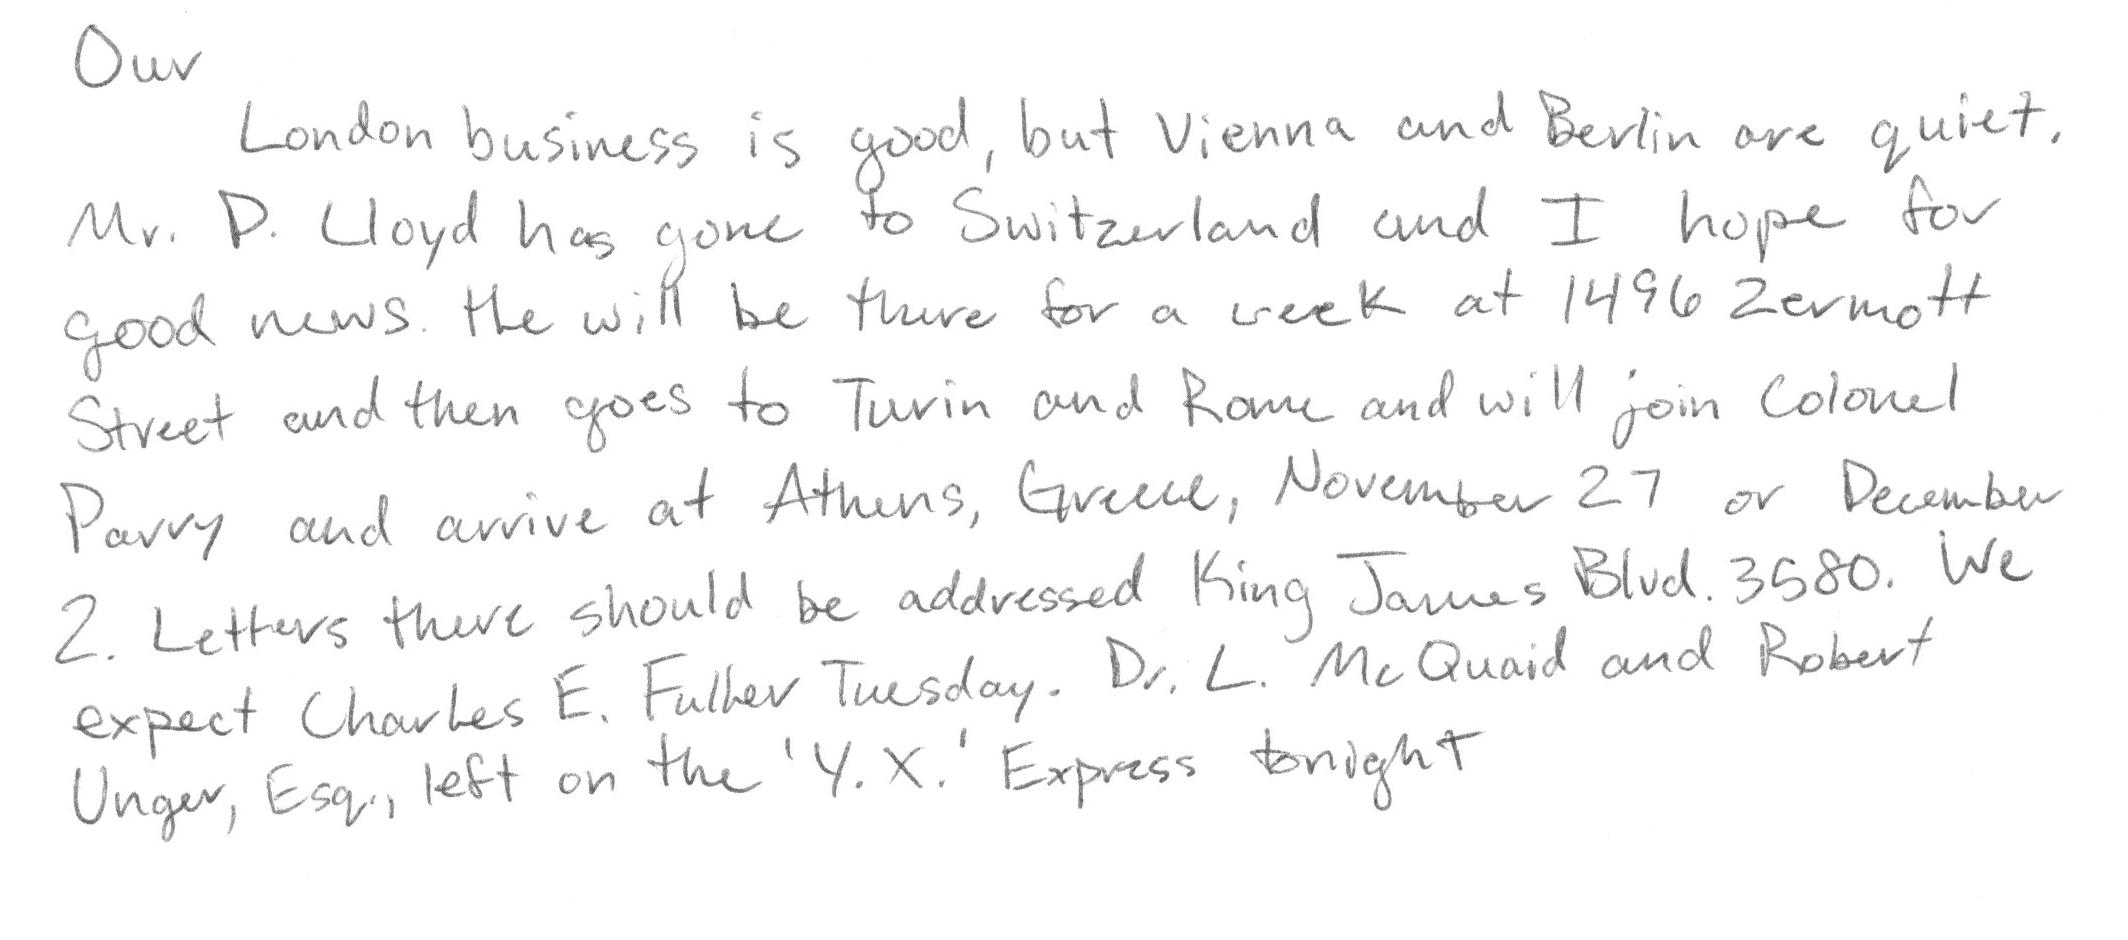 Our
London business is good, but Vienna and Berlin are quiet.
Mr. D. Lloyd has gone to Switzerland and I hope for
good news. He will be there for a week at 1496 Zermott
Street and then goes to Turin and Rome and will join Colonel
Parry and arrive at Athens, Greece, November 27 or December
2. Letters there should be addressed King James Blvd. 3580. We
expect Charles E. Fuller Tuesday. Dr. L. McQuaid and Robert
Unger, Esq., left on the 'Y.X.' Express tonight